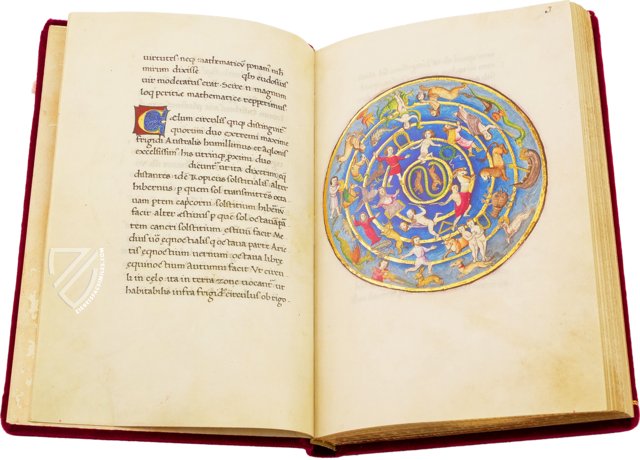 uirtutes neq; mathematicū ponam nih
mirum dixisse qđ eudossus
uir moderatus erat. Seire n̄ magnum
loq peritię mathematicę repperimus
Cælum circulis qnq; distinguit̄
quorum duo extremi maxime
frigidi Australis humillimus et aqlonis
excelsissim' his utrinq; proximi duo
dicunt̄ ut ita dixerim
distantes. idē Tropicus solstitialis alter
hibernus p̄ quem sol transmittēs octa
uam prem capcorni solstitium hibernū
facit alter æstiuus p quē sol octauā p̄
tem cancri solstitium. estiuū facit. Me
dius uō eqnoctialis q octaua parte Arie
tis eqnoctium uernum octaua librę
equinoctium autumni facit. Vt circu
li in celo ita in terra zone uocant̄ ut
habitabilis infra frigidi circulus obrigo
3